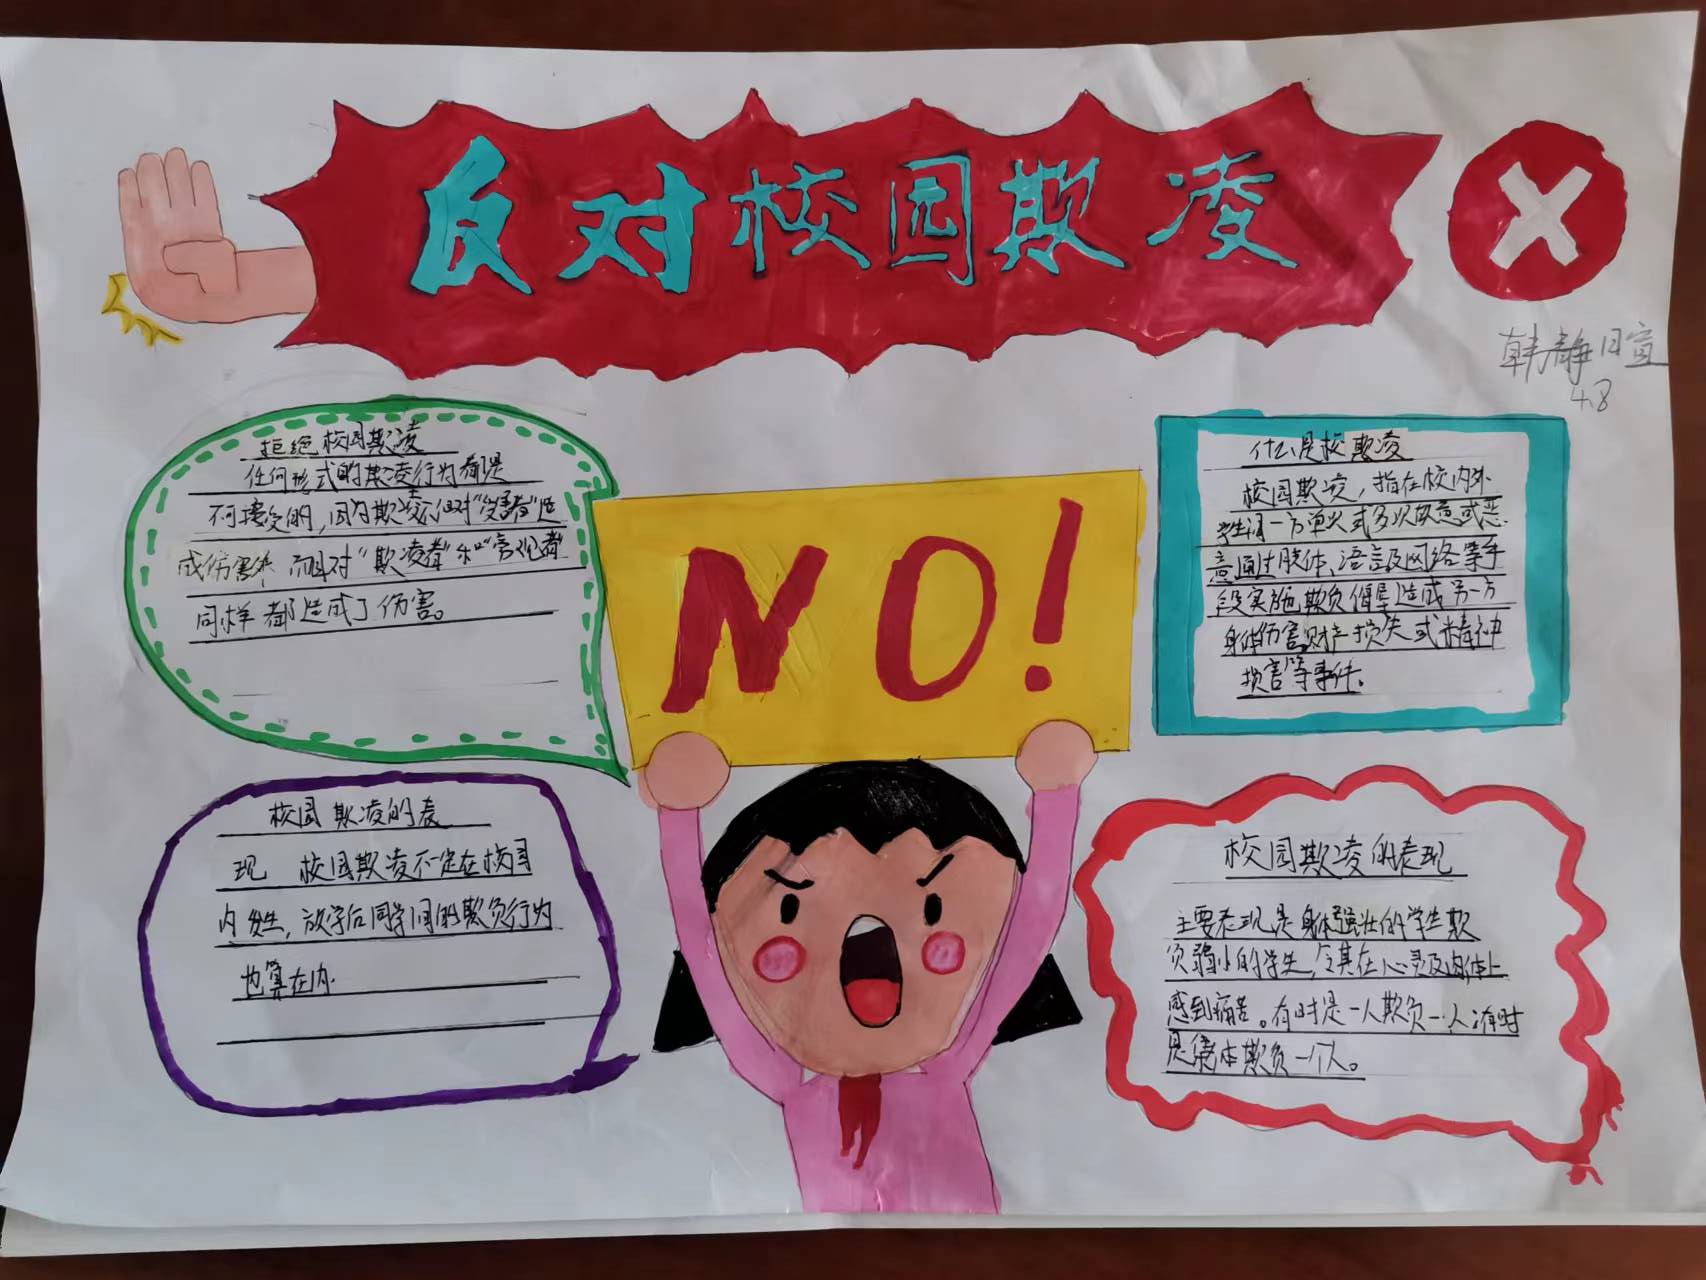 反对校园欺凌
韩静瑄
4.8
拒绝校园欺凌
任何形式的欺凌行为都是
不可接受的，因为欺凌不但对“受害者”造
成伤害 而且对“欺凌者”和“旁观者”
同样都造成了伤害。
NO!
什么是校欺凌
校园欺凌，指在校内外
学生间一方单次或多次故意或恶
意通过肢体、语言及网络等手
段实施欺负 造成另一方
身体伤害财产损失或精神
损害等事件。
校园欺凌的表
现 校园欺凌不一定在校园
内发生，放学后同学间的欺负行为
也算在内.
校园欺凌的表现
主要表现是身体强壮的学生欺
负弱小的学生，令其在心灵及肉体上
感到痛苦。有时是一人欺负一人，有时
是 欺负一个人。